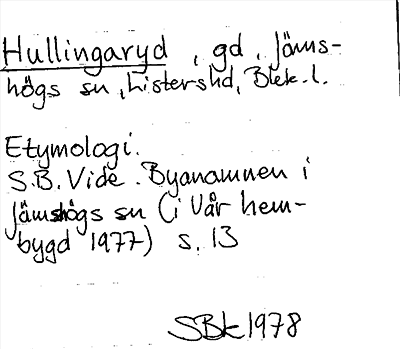 Hullingaryd, gd, Jäms-
högs sn, Listers hd, Blek. l.
Etymologi.
S.B. Vide. Byanamnen i
Jämshögs sn (i Vår hem-
bygd 1977) s. 13
SBk 1978